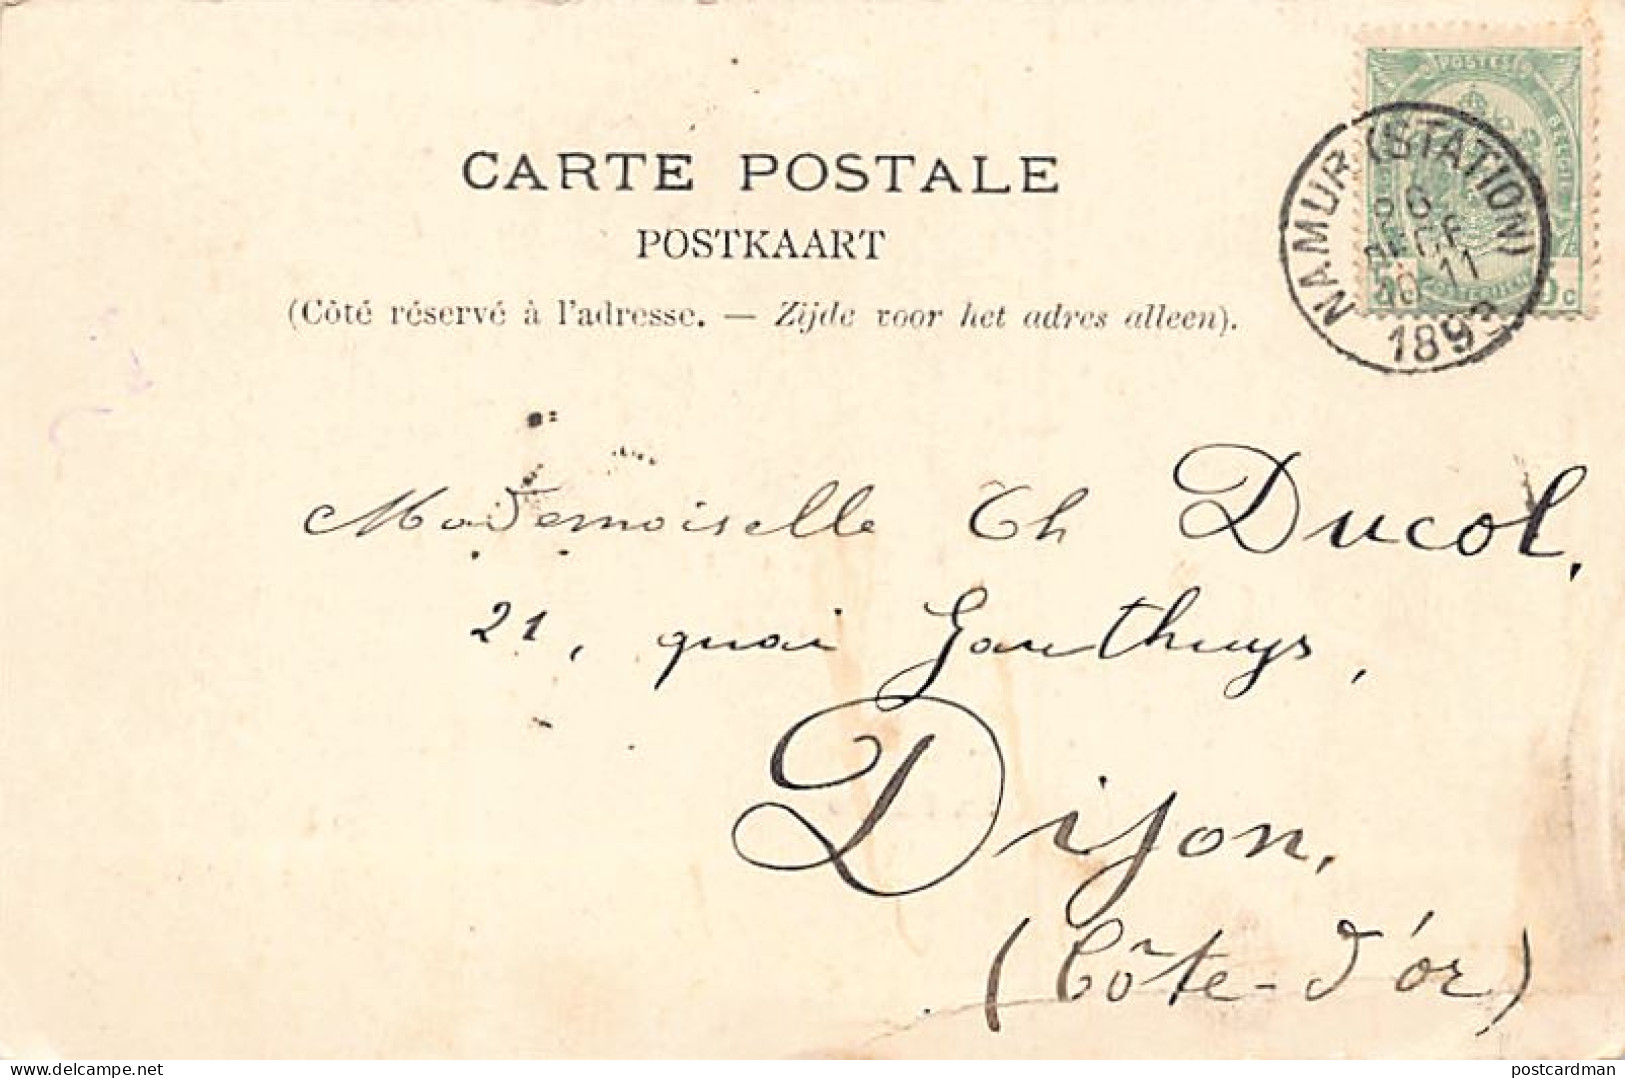 POSTES
BELGIE
CARTE POSTALE
POSTKAART
(Côté réservé à l'adresse. — Zijde voor het adres alleen).
NAMUR (STATION)
10-11
1893
Mademoiselle Ch Ducol,
21, quai Gauthuys,
Dijon.
(Côte-d'or)
delcampe.net
postcardman